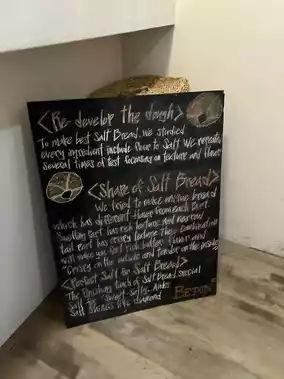 <Re-develop the dough>
To make best Salt Bread, we studied
every ingredient include flour to Salt. We repeated
several times of test focusing on texture and flavor
<Shape of Salt Bread>
We tried to make unique bread
which has different flavor from each part.
Swelling part has rich texture and narrow
tail part has crispy texture. These combination
will make you feel rich butter flavor and
"Crispy on the outside and tender on the inside"
<Perfect Salt for Salt Bread>
The finishing touch of Salt Bread, special
Salt
Salt shines like diamond